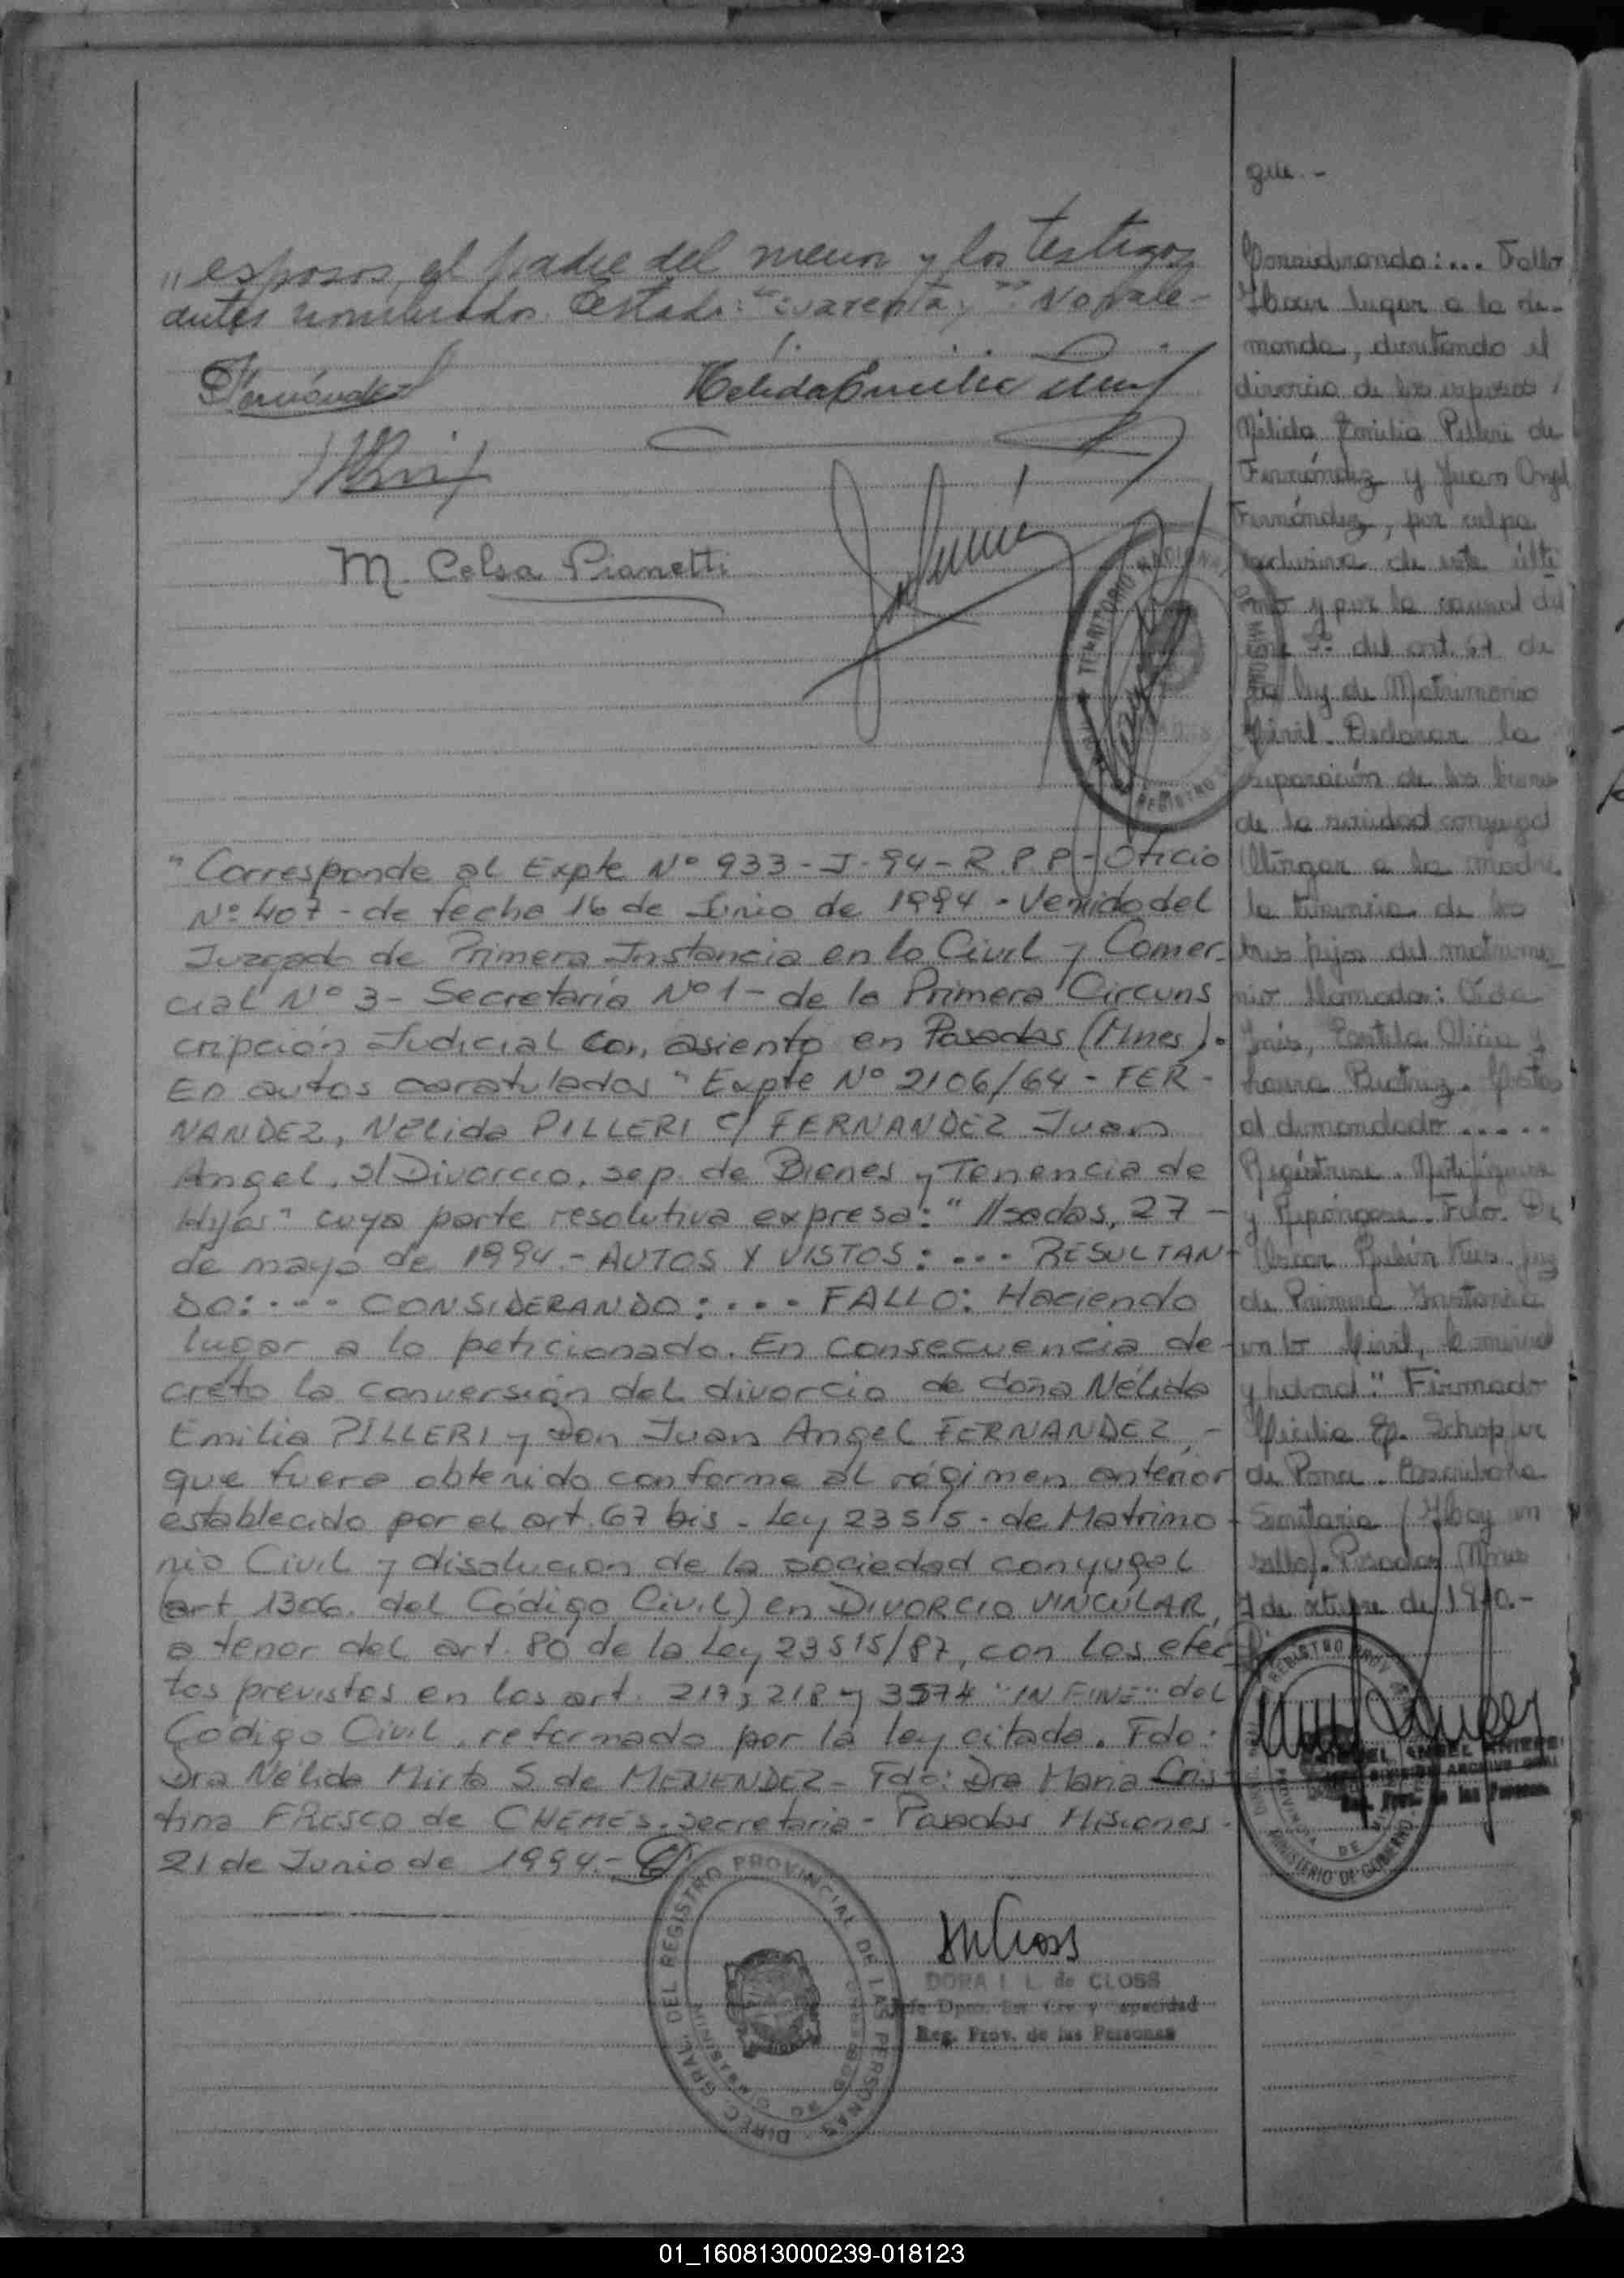 " esposos, el padre del menor y los testigos
antes nombrados. Testado: "cuarenta," No vale-
Fernández
Nelida Emilia
M. Celsa Pianetti
TERRITORIO NACIONAL DE MISIONES
REGISTRO
"Corresponde al Expte Nº 933-J-94-R.P.P-Oficio
Nº 407-de fecha 16 de Junio de 1994-Venido del
Juzgado de Primera Instancia en lo Civil y Comer-
cial Nº 3-Secretaría Nº 1-de la Primera Circuns
cripción Judicial con asiento en Posadas (Mnes).
En autos caratulados "Expte Nº 2106/64-FER-
NANDEZ, Nélida PILLERI c/ FERNANDEZ Juan
Angel, s/Divorcio, sep. de Bienes y Tenencia de
Hijos" cuya parte resolutiva expresa: "//sadas, 27-
de mayo de 1994.-AUTOS Y VISTOS:... RESULTAN-
DO:... CONSIDERANDO:... FALLO: Haciendo
lugar a lo peticionado. En consecuencia de-
creto la conversión del divorcio de doña Nélida
Emilia PILLERI y Don Juan Angel FERNANDEZ,-
que fuera obtenido conforme al régimen anterior
establecido por el art. 67 bis-Ley 23515-de Matrimo-
nio Civil y disolucion de la sociedad conyugal
(art 1306. del Código Civil) en DIVORCIO VINCULAR,
a tenor del art. 80 de la Ley 23515/87, con los efec-
tos previstos en los art. 217, 218 y 3574 "IN FINE" del
Codigo Civil, reformado por la ley citada. Fdo:
Dra Nélida Mirta S de MENENDEZ-Fdo: Dra Maria Cris-
tina FRESCO de CHEMES. Secretaria-Posadas Misiones-
21 de Junio de 1994.-
DIREC. GRAL. DEL REGISTRO PROVINCIAL DE LAS PERSONAS
DORA I L de CLOSS
Reg. Prov. de las Personas
que.-
Considerando:... Fallo
Hacer lugar a la de-
manda, decretando el
divorcio de los esposos
Nélida Emilia Pilleri de
Fernández y Juan Angel
Fernández, por culpa
exclusiva de este últi
mo y por la causal del
inc 5º del art. 67 de
la ley de Matrimonio
Civil. Declarar la
separación de los bienes
de la sociedad conyugal
Otorgar a la madre
la tenencia de los
tres hijos del matrimo-
nio llamados:
Inés, Alicia y
Laura Beatriz. Costas
al demandado.....
Regístrese. Notifíquese
y Repóngase. Fdo. Dr
Oscar Rubén Juez
de Primera Instancia
en lo Civil, Comercial
y Laboral." Firmado
Cecilia E. Schapfer
de Ponce. Escribana
Secretaria (Hay un
sello). Posadas, Mnes
7 de octubre de 1970.-
REGISTRO PROV
MINISTERIO DE GOBIERNO
ANGEL
DIVISION ARCHIVO GRAL
Reg. Prov. de las Personas
01_160813000239-018123